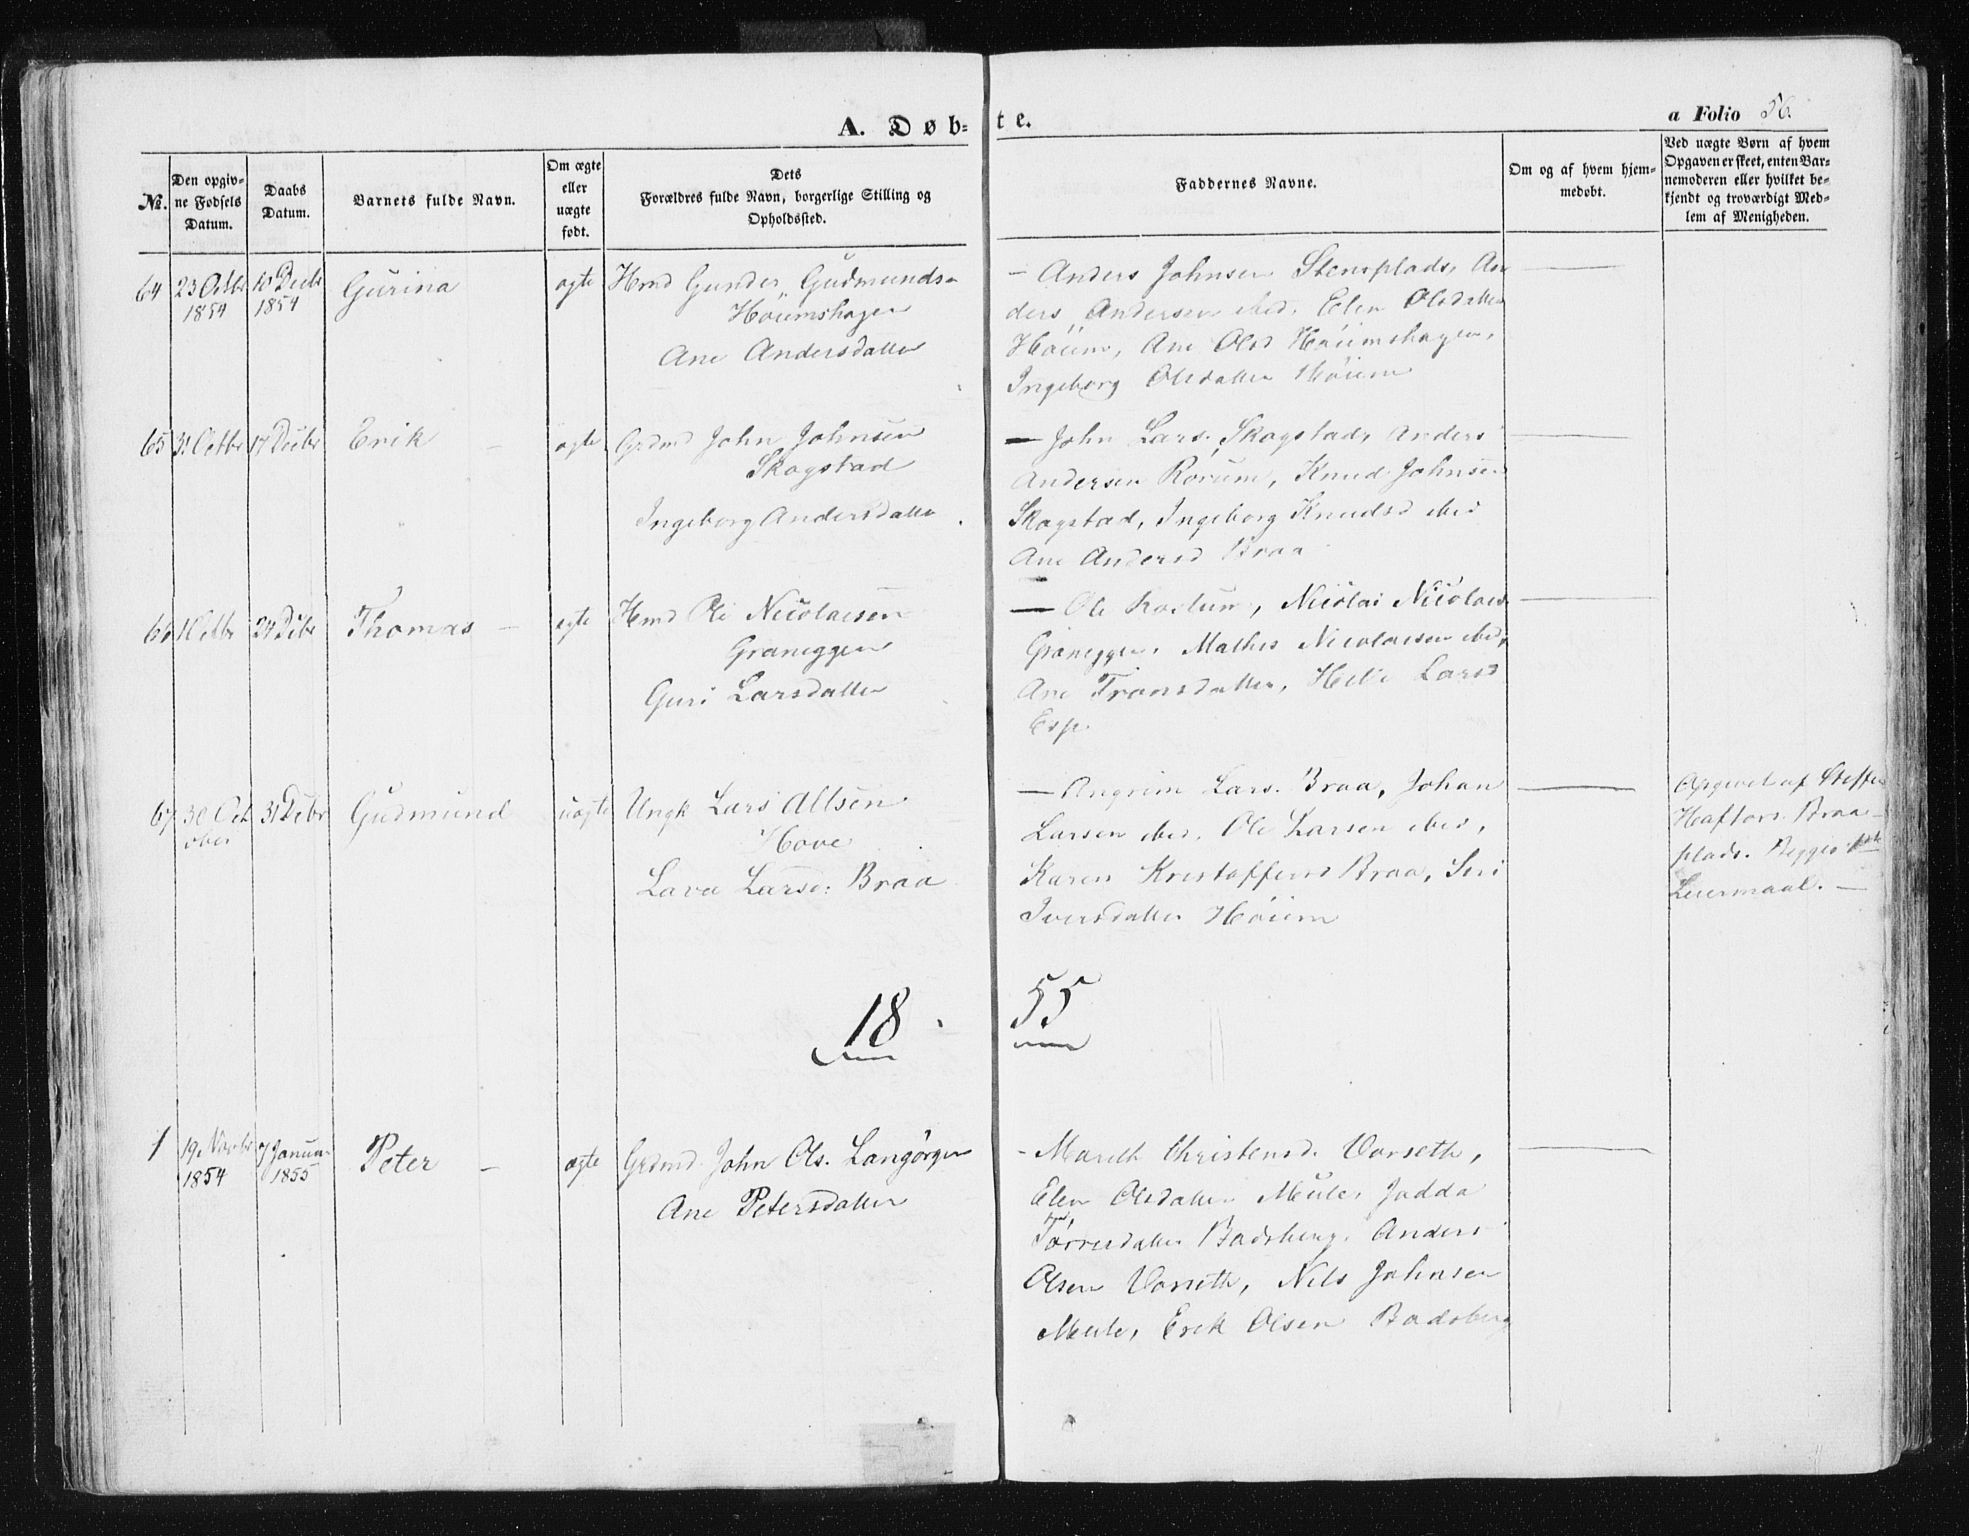 A. Døb=te.
a Folio 56.
No.
Den opgiv=
ne Fødsels
Datum.
Daabs
Datum.
Barnets fulde Navn.
Om ægte
eller
uægte
født.
Dets
Forældres fulde Navn, borgerlige Stilling og
Opholdssted.
Faddernes Navne.
Om og af hvem hjem=
medøbt.
Ved uægte Børn af hvem
Opgaven er skeet, enten Bar=
nemoderen eller hvilket be=
kjendt og troværdigt Med=
lem af Menigheden.
64 23 Octbr 10 Decbr Gurina ægte Hmd Gunder Gudmunds-
1854 1854
Høiumshagen
Ane Andersdatter
- Anders Johnsen Stensplads, An
ders Andersen ibid, Elen Olsdatter
Høium, Ane Olsd Høiumshagen,
Ingeborg Olsdatter Høium
65 31 Octbr 17 Decbr Erik - ægte Grdmd John Johnsen
Skogstad
Ingeborg Andersdatter
- John Lars. Skogstad, Anders
Andersen Rorum, Knud Johnsen
Skogstad, Ingeborg Knudsd ibid
Ane Andersd Braa
66 1 Octbr 24 Debr Thomas - ægte Hmd Ole Nicolaisen
Graneggen
Guri Larsdatter
- Ole , Nicolai Nicolais
Graneggen, Mathis Nicolaisen ibid,
Ane Transdatter, Larsd
Esp.
67 30 Oct 31 Debr Gudmund uægte Ungk Lars Altsen
ober
Hove
Lava Larsd: Braa
- Angrim Lars. Braa, Johan
Larsen ibid, Ole Larsen ibid,
Karen Kristoffersd Braa, Siri
Iversdatter Høium
Opgivet af Steffen
Haftors. Braa-
plads. Begges 1ste
Leiermaal. -
18 55
1 19 Novbr 7 Januar Peter - ægte Grdmd. John Ols. Langørgen
1854 1855
Ane Petersdatter
- Marith Christensd. Vorseth,
Elen Olsdatter Meule, Jadda
Torresdatter Badsberg, Anders
Olsen Vorseth, Nils Johnsen
Meule, Erek Olsen Badsberg